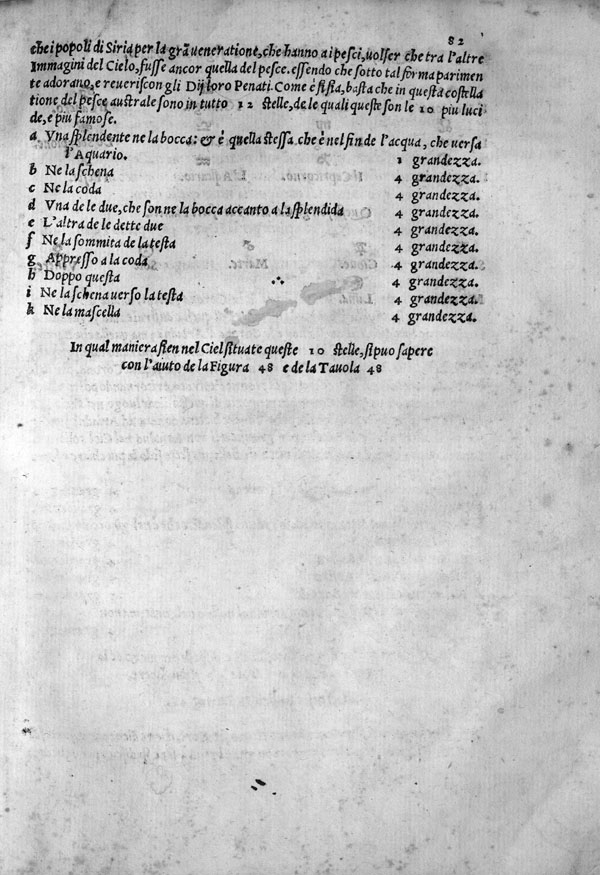 82
che i popoli di Siria per la grã ueneratione, che hanno a i pesci, uolser che tra l'altre
Immagini del Cielo, fusse ancor quella del pesce. essendo che sotto tal forma parimen
te adorano, e reueriscon gli Dij loro Penati. Come è si sia, basta che in questa costella
tione del pesce australe sono in tutto 12 stelle, de le quali queste son le 10 piu luci
de, e piu famose.
a Vna splendente ne la bocca: & è quella stessa che è nel fin de l'acqua, che uersa
l'Aquario. 1 grandezza.
b Ne la schena 4 grandezza.
c Ne la coda 4 grandezza.
d Vna de le due, che son ne la bocca accanto a la splendida 4 grandezza.
e L'altra de le dette due 4 grandezza.
f Ne la sommita de la testa 4 grandezza.
g Appresso a la coda 4 grandezza.
h Doppo questa 4 grandezza.
i Ne la schena uerso la testa 4 grandezza.
k Ne la mascella 4 grandezza.
In qual maniera sien nel Ciel situate queste 10 stelle, si puo sapere
con l'aiuto de la Figura 48 e de la Tauola 48